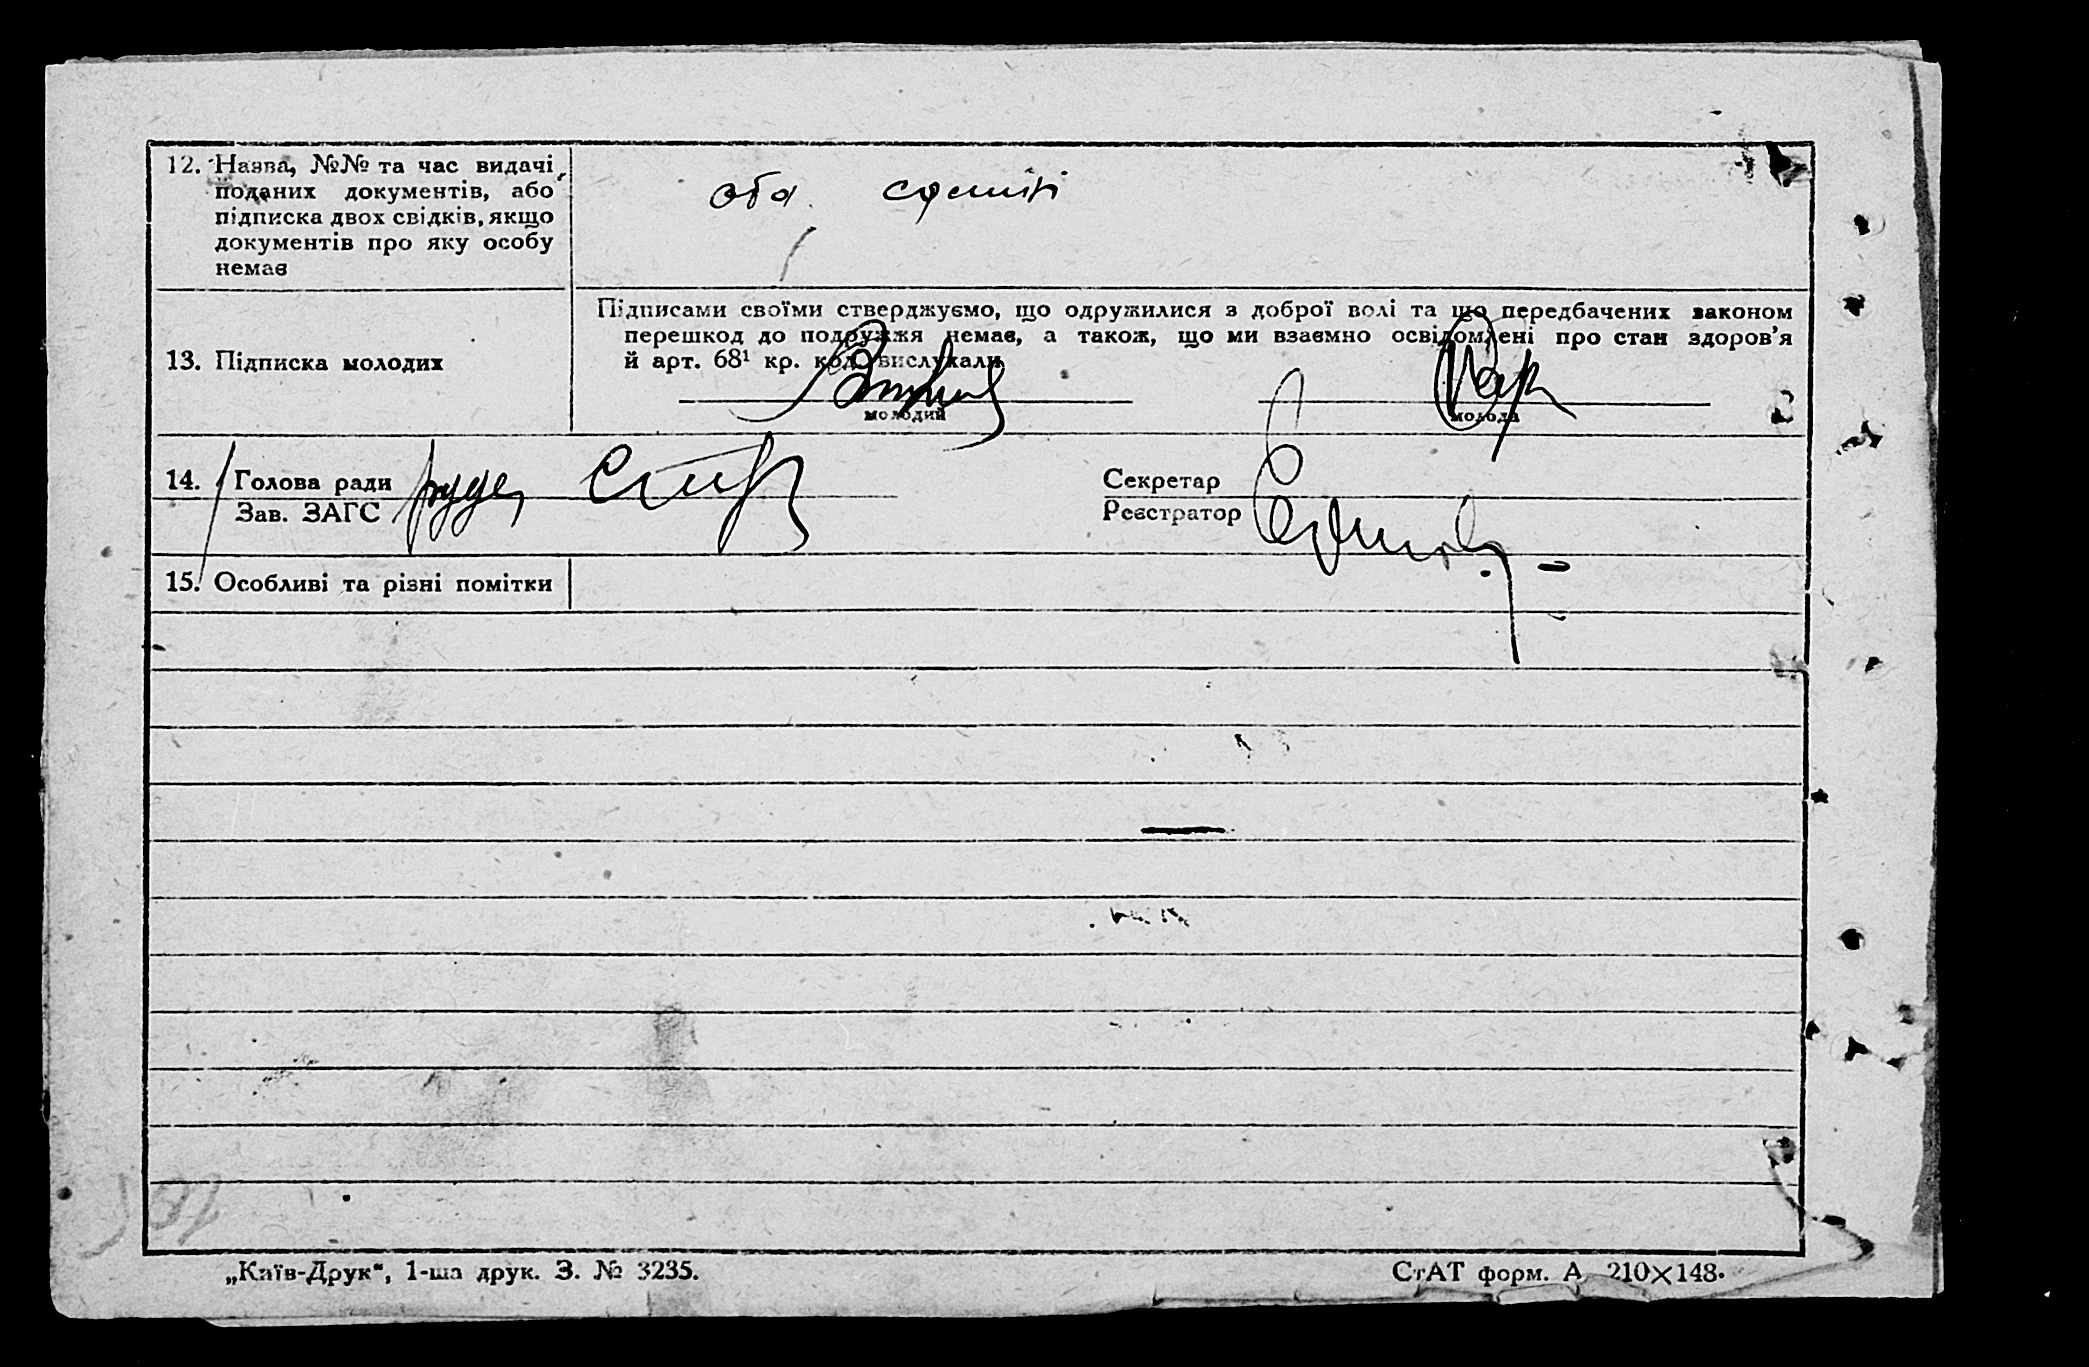 12. Назва, №№ та час видачі
поданих документів, або
підписка двох свідків, якщо
документів про яку особу
немає
оба
13. Підписка молодих
Підписами своїми стверджуємо, що одружилися з доброї волі та що передбачених законом
перешкод до подружжя немає, а також, що ми взаємно освідомлені про стан здоров'я
й арт. 68¹ кр. код. вислухали
молодий
молода
14. Голова ради
Зав. ЗАГС
Секретар
Реєстратор
15. Особливі та різні помітки
„Київ-Друк“, 1-ша друк. З. № 3235.
СтАТ форм. А 210×148.